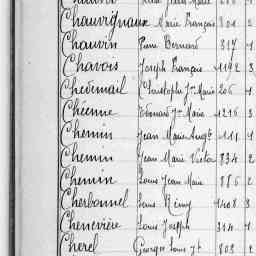 Chauvignaux Marie François 304 2
Chauvin Pierre Bernard 317 1
Chavois Joseph François 1192 3
Christophe Jn Marie 206 1
Chéenne Edouard Jn Marie 1216 3
Chemin Jean Marie Augte 111 1
Chemin Jean Marie Victor 834 2
Chemin Louis Jean Marie 876 2
Cherbonnel Louis Rémy 1408 3
Chenevière Louis Joseph 314 1
Cherel Georges Louis Jh 803 2